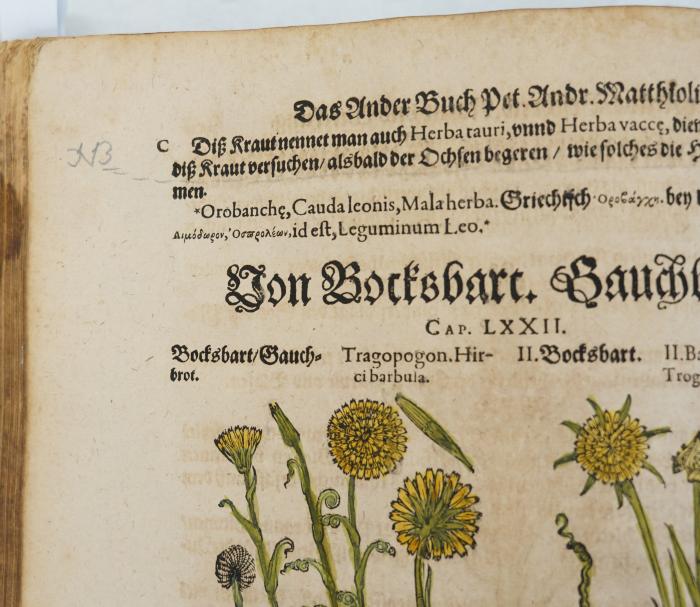 Das Ander Buch Pet. Andr. Matthioli
NB
C Diß Kraut nennet man auch Herba tauri, vnnd Herba vaccę, dien
diß Kraut versuchen/ alsbald der Ochsen begeren / wie solches die H
men.
*Orobanchę, Cauda leonis, Mala herba. Griechisch Οροβάγχη. bey
Αιμόδωρον, Ὀσπρολέων, id est, Leguminum Leo.*
Von Bocksbart. Gauchb
CAP. LXXII.
Bocksbart/Gauch- Tragopogon. Hir- II. Bocksbart. II. Ba
brot. ci barbula. Trog